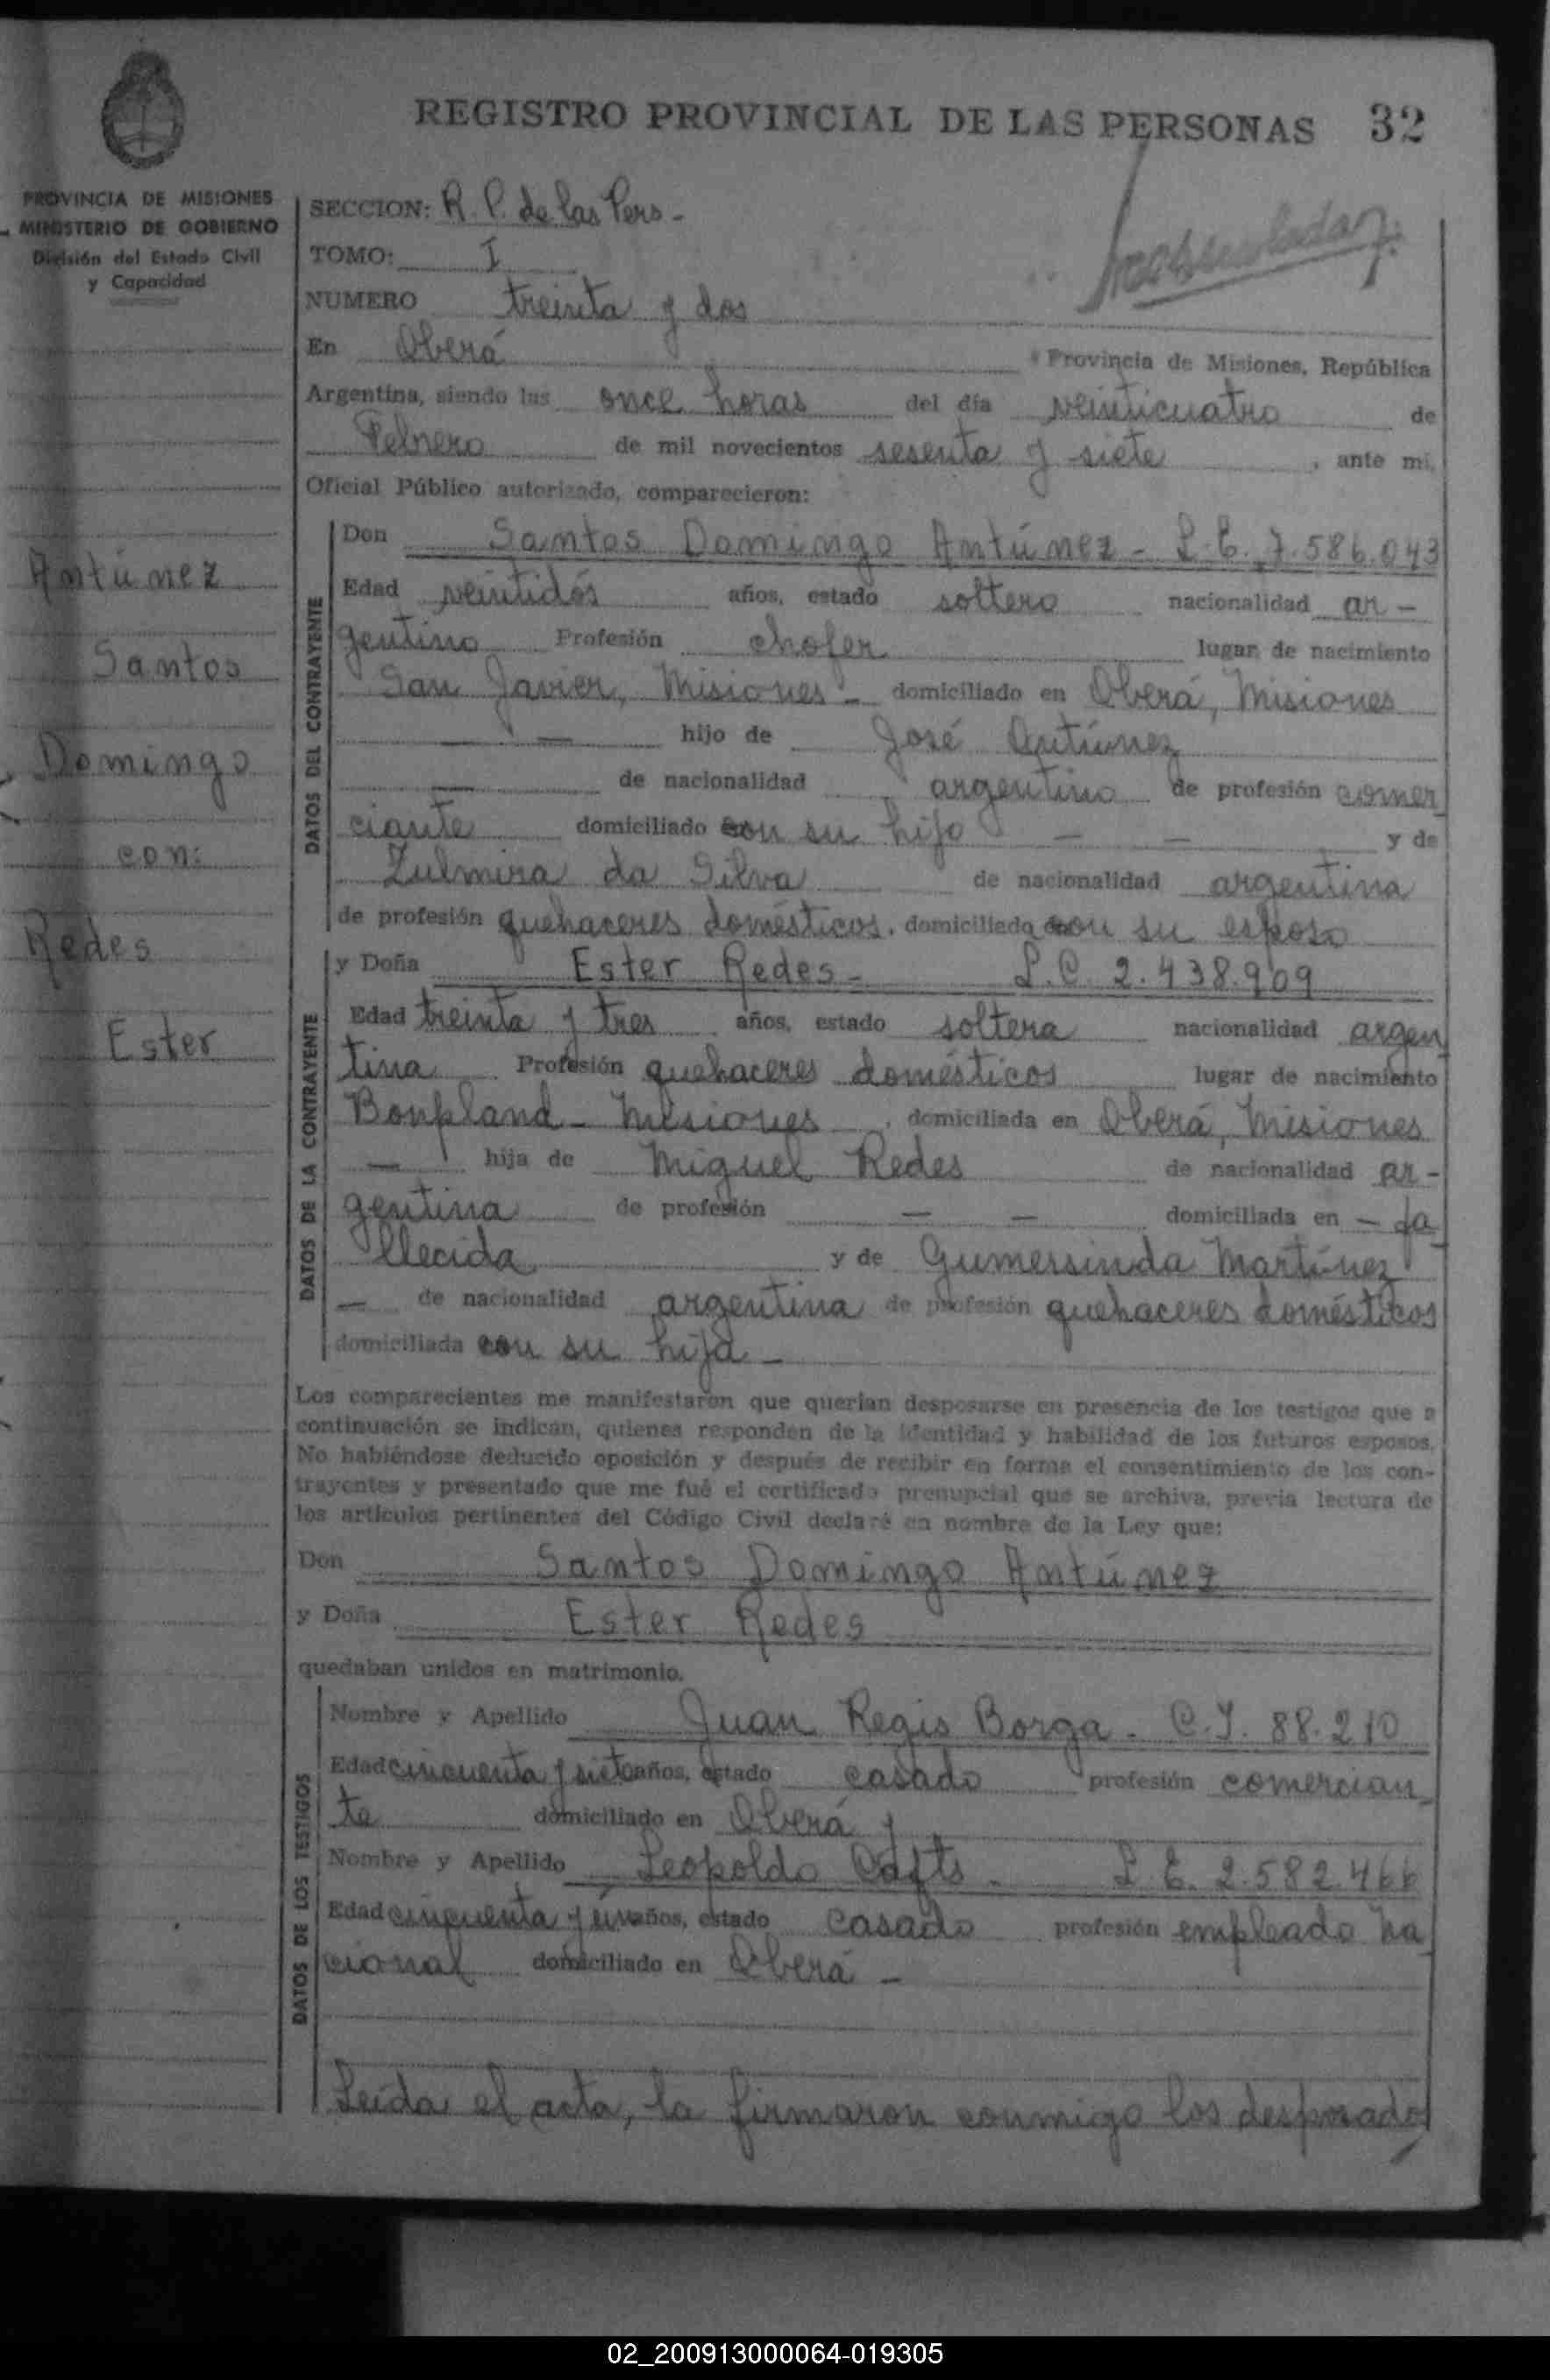 REGISTRO PROVINCIAL DE LAS PERSONAS 32
PROVINCIA DE MISIONES
MINISTERIO DE GOBIERNO
División del Estado Civil
y Capacidad
SECCION: R. P. de las Pers-
TOMO: I
NUMERO treinta y dos
En Oberá Provincia de Misiones, República
Argentina, siendo las once horas del día veinticuatro de
Febrero de mil novecientos sesenta y siete, ante mi,
Oficial Público autorizado, comparecieron:
Antúnez
Santos
Domingo
con:
Redes
Ester
DATOS DEL CONTRAYENTE
Don Santos Domingo Antúnez - L.E. 7.586.043
Edad veintidós años, estado soltero nacionalidad ar-
gentino Profesión chofer lugar de nacimiento
San Javier, Misiones - domiciliado en Oberá, Misiones
— hijo de José Antúnez
— de nacionalidad argentino de profesión comer
ciante domiciliado con su hijo — — y de
Zulmira da Silva de nacionalidad argentina
de profesión quehaceres domésticos, domiciliada con su esposo
DATOS DE LA CONTRAYENTE
y Doña Ester Redes - L.C. 2.438.909
Edad treinta y tres años, estado soltera nacionalidad argen
tina Profesión quehaceres domésticos lugar de nacimiento
Bonpland - Misiones, domiciliada en Oberá, Misiones
— hija de Miguel Redes de nacionalidad ar-
gentina de profesión — — domiciliada en — fa
llecida y de Gumersinda Martínez
— de nacionalidad argentina de profesión quehaceres domésticos
domiciliada con su hija -
Los comparecientes me manifestaron que querían desposarse en presencia de los testigos que a
continuación se indican, quienes responden de la identidad y habilidad de los futuros esposos.
No habiéndose deducido oposición y después de recibir en forma el consentimiento de los con-
trayentes y presentado que me fué el certificado prenupcial que se archiva, previa lectura de
los artículos pertinentes del Código Civil declaré en nombre de la Ley que:
Don Santos Domingo Antúnez
y Doña Ester Redes
quedaban unidos en matrimonio.
DATOS DE LOS TESTIGOS
Nombre y Apellido Juan Regis Borga - C.I. 88.210
Edad cincuenta y siete años, estado casado profesión comercian
te domiciliado en Oberá y
Nombre y Apellido Leopoldo - L.E. 2.582.466
Edad cincuenta y un años, estado casado profesión empleado na
cional domiciliado en Oberá -
Leída el acta, la firmaron conmigo los desposados
02_200913000064-019305